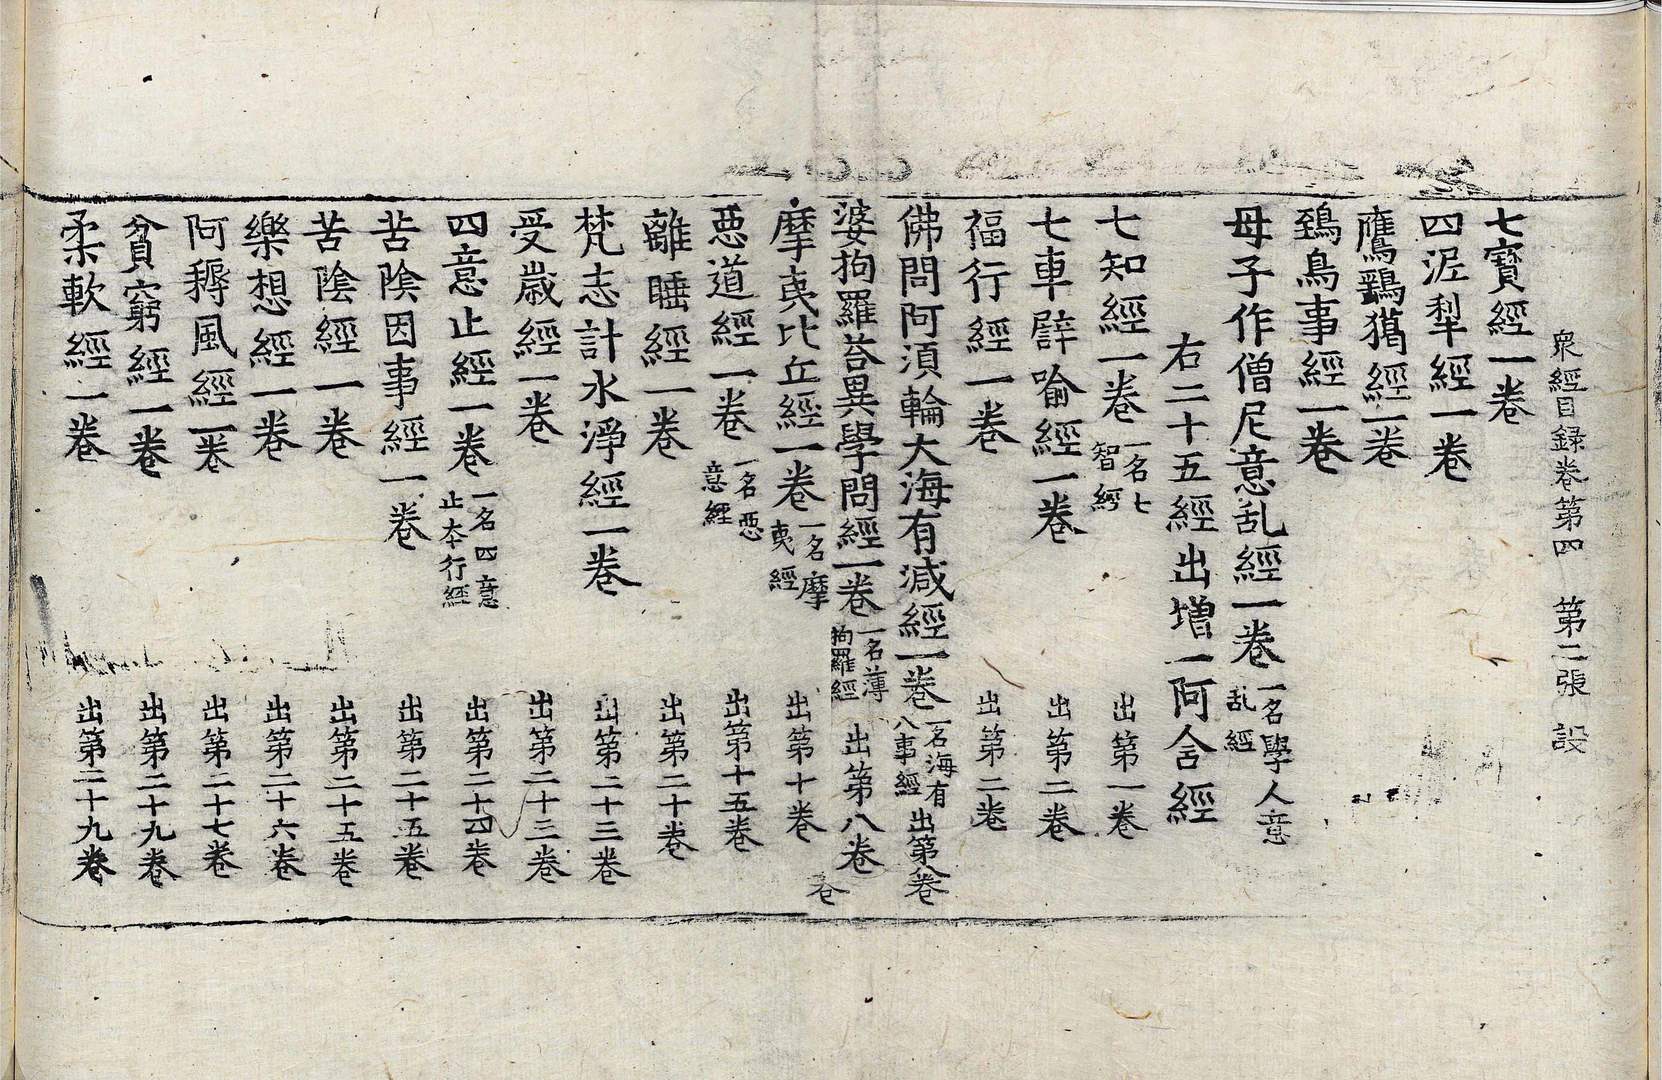 衆經目録卷第四　第二張　設
七寶經一卷
四泥犁經一卷
鷹鷂獦經一卷
鵄鳥事經一卷
母子作僧尼意乱經一卷 一名學人意乱經
右二十五經出增一阿含經
七知經一卷 一名七智經 出第一卷
七車譬喻經一卷 出第二卷
福行經一卷 出第二卷
佛問阿須輪大海有減經一卷 一名海有八事經 出第八卷
婆拘羅荅異學問經一卷 一名薄拘羅經 出第八卷
摩夷比丘經一卷 一名摩夷經 出第十卷
惡道經一卷 一名惡意經 出第十五卷
離睡經一卷 出第二十卷
梵志計水淨經一卷 出第二十三卷
受歲經一卷 出第二十三卷
四意止經一卷 一名四意止本行經 出第二十四卷
苦陰因事經一卷 出第二十五卷
苦陰經一卷 出第二十五卷
樂想經一卷 出第二十六卷
阿耨風經一卷 出第二十七卷
貧窮經一卷 出第二十九卷
柔軟經一卷 出第二十九卷